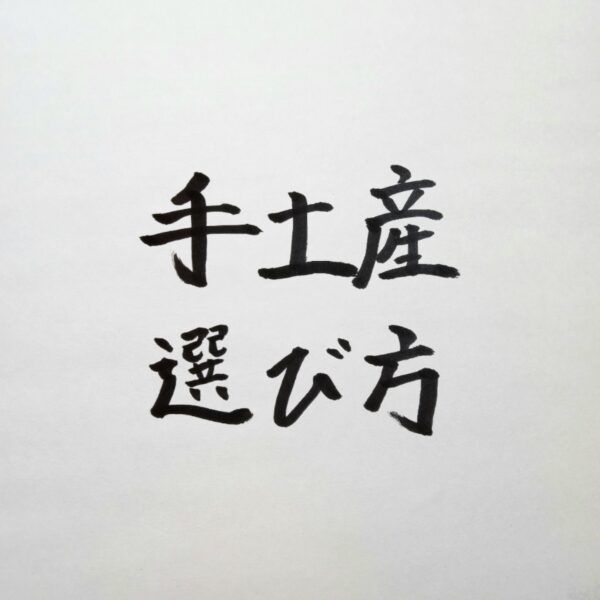 手土産
選び方